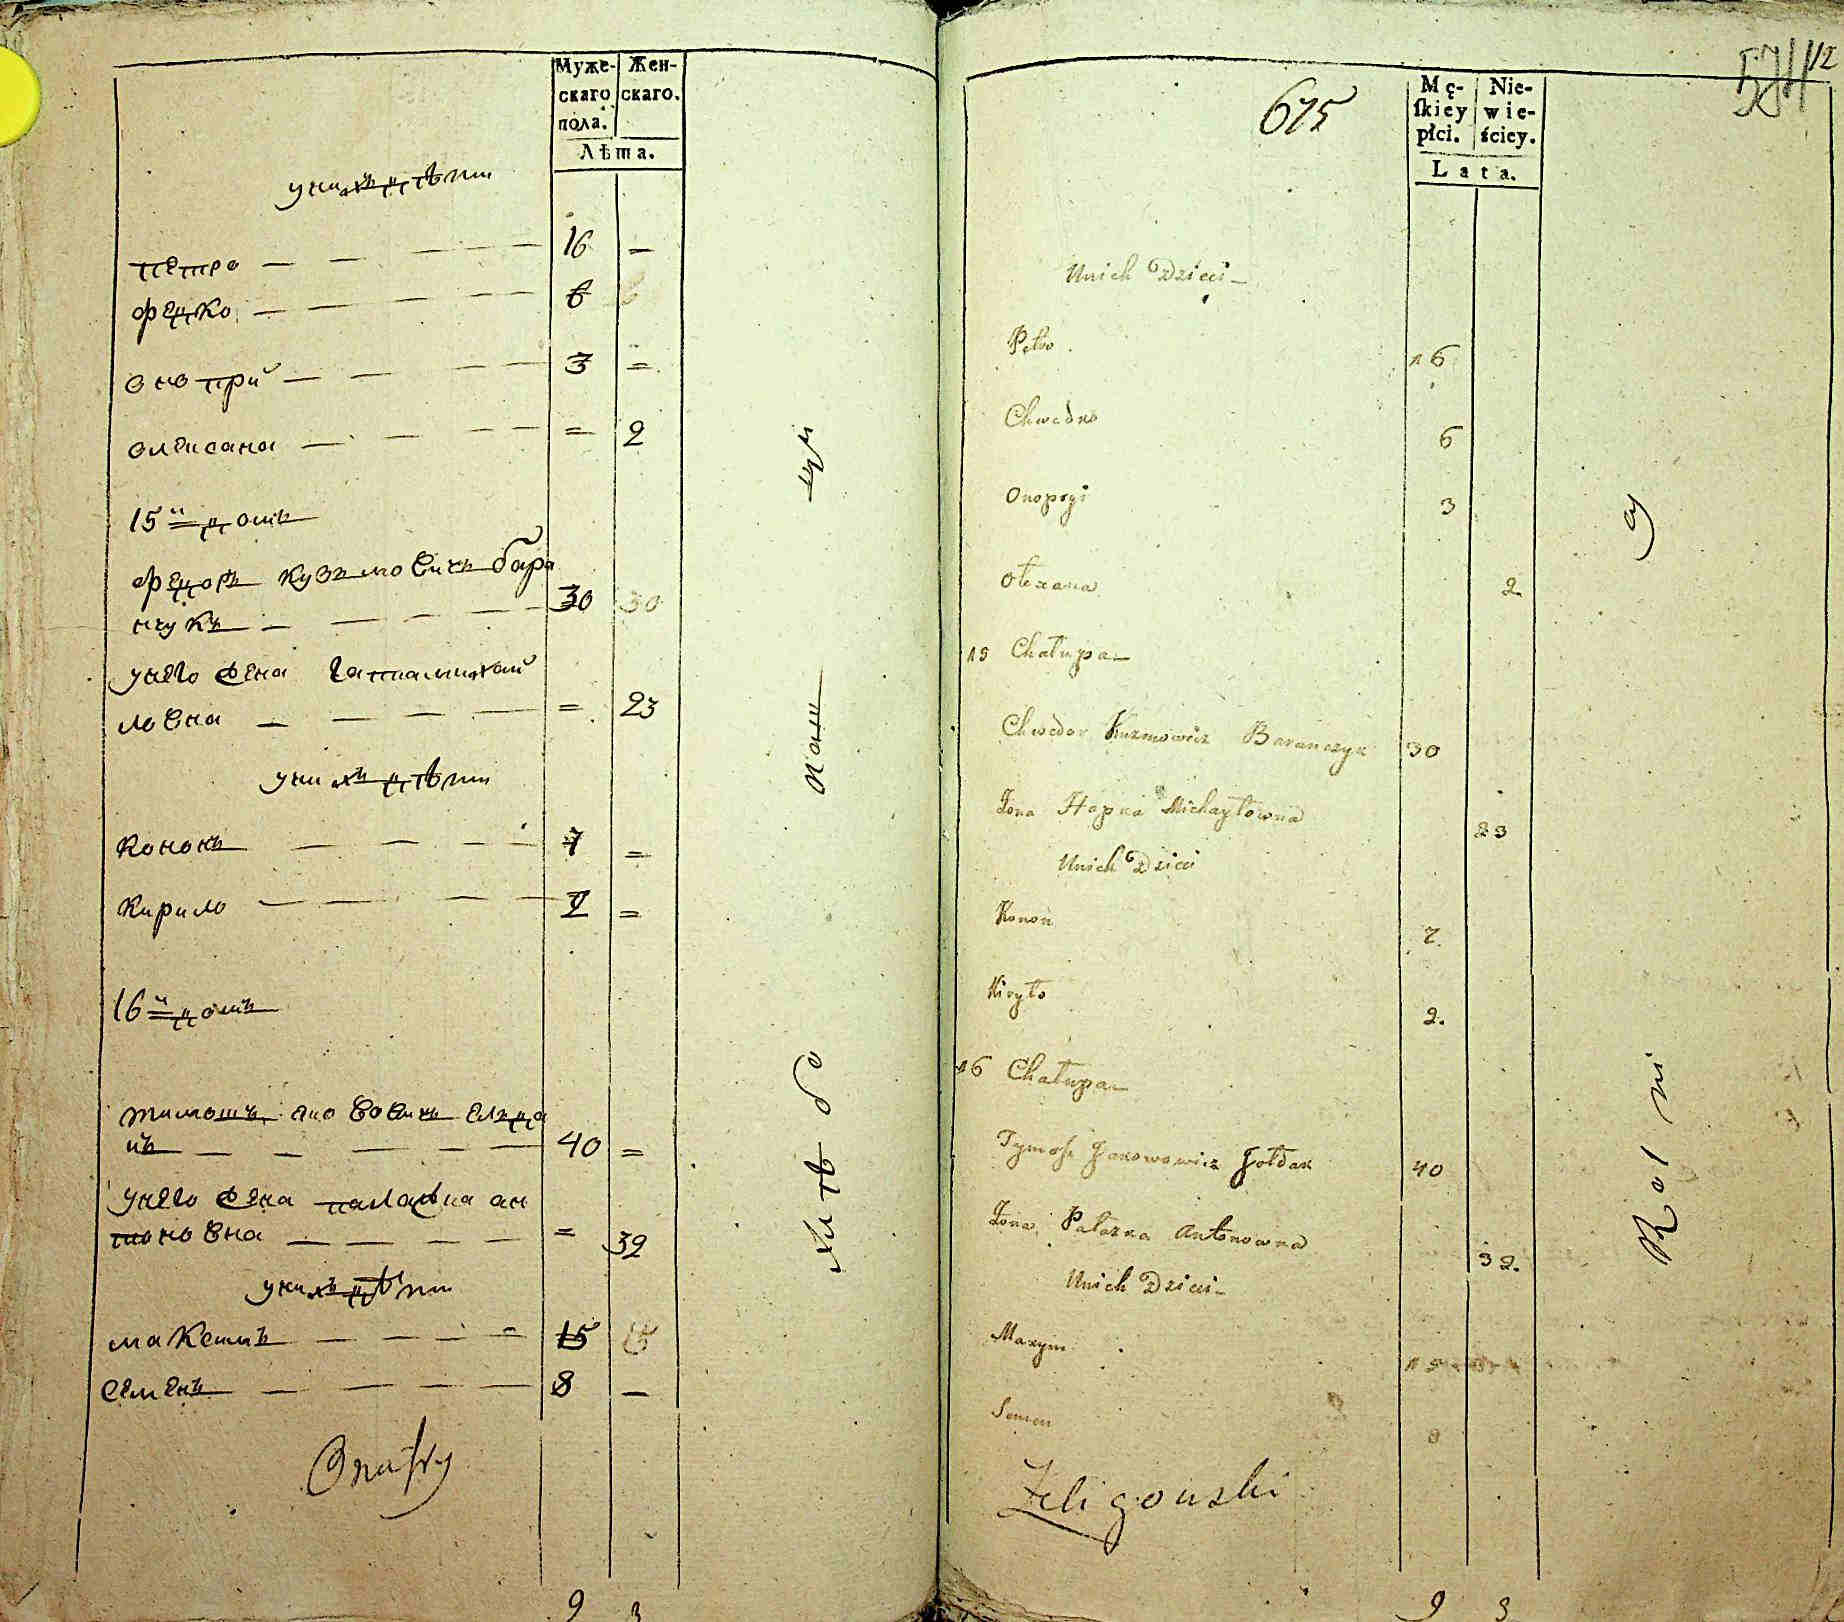 Муже- Жен-
скаго скаго.
пола.
Лѣта.
у нихъ дѣти
петро 16 =
федко 6
онопри 3 =
олексана = 2
15й домъ
федоръ кузмовичъ бара
нчукъ 30
у него жена гапка михай
ловна = 23
у нихъ дѣти
кононъ 7 =
кирило 2 =
16й домъ
тимошъ
40 =
у него жена палажка ан
тоновна = 32
у нихъ дѣти
максимъ 15
семенъ 8 =
хлѣбо паш цы
Onufry
9 3
12
675
Mę- Nie-
ſkiey wie-
płci. ściey.
Lata.
Unich Dzieci
Petro 16
Chwedko 6
Onopryi 3
Olexana 2
15 Chałupa
Chwedor Kuzmowicz Baranczyk 30
Żona Hapka Michayłowna 23
Unich Dzieci
Konon 7
Kiryło 2.
16 Chałupa
Tymosz Jakowowicz Jołdak 40
Żona Pałazka Antonowna 32.
Unich Dzieci
Maxym 15
Semen 8
Rolnicy
Żeligowski
9 3